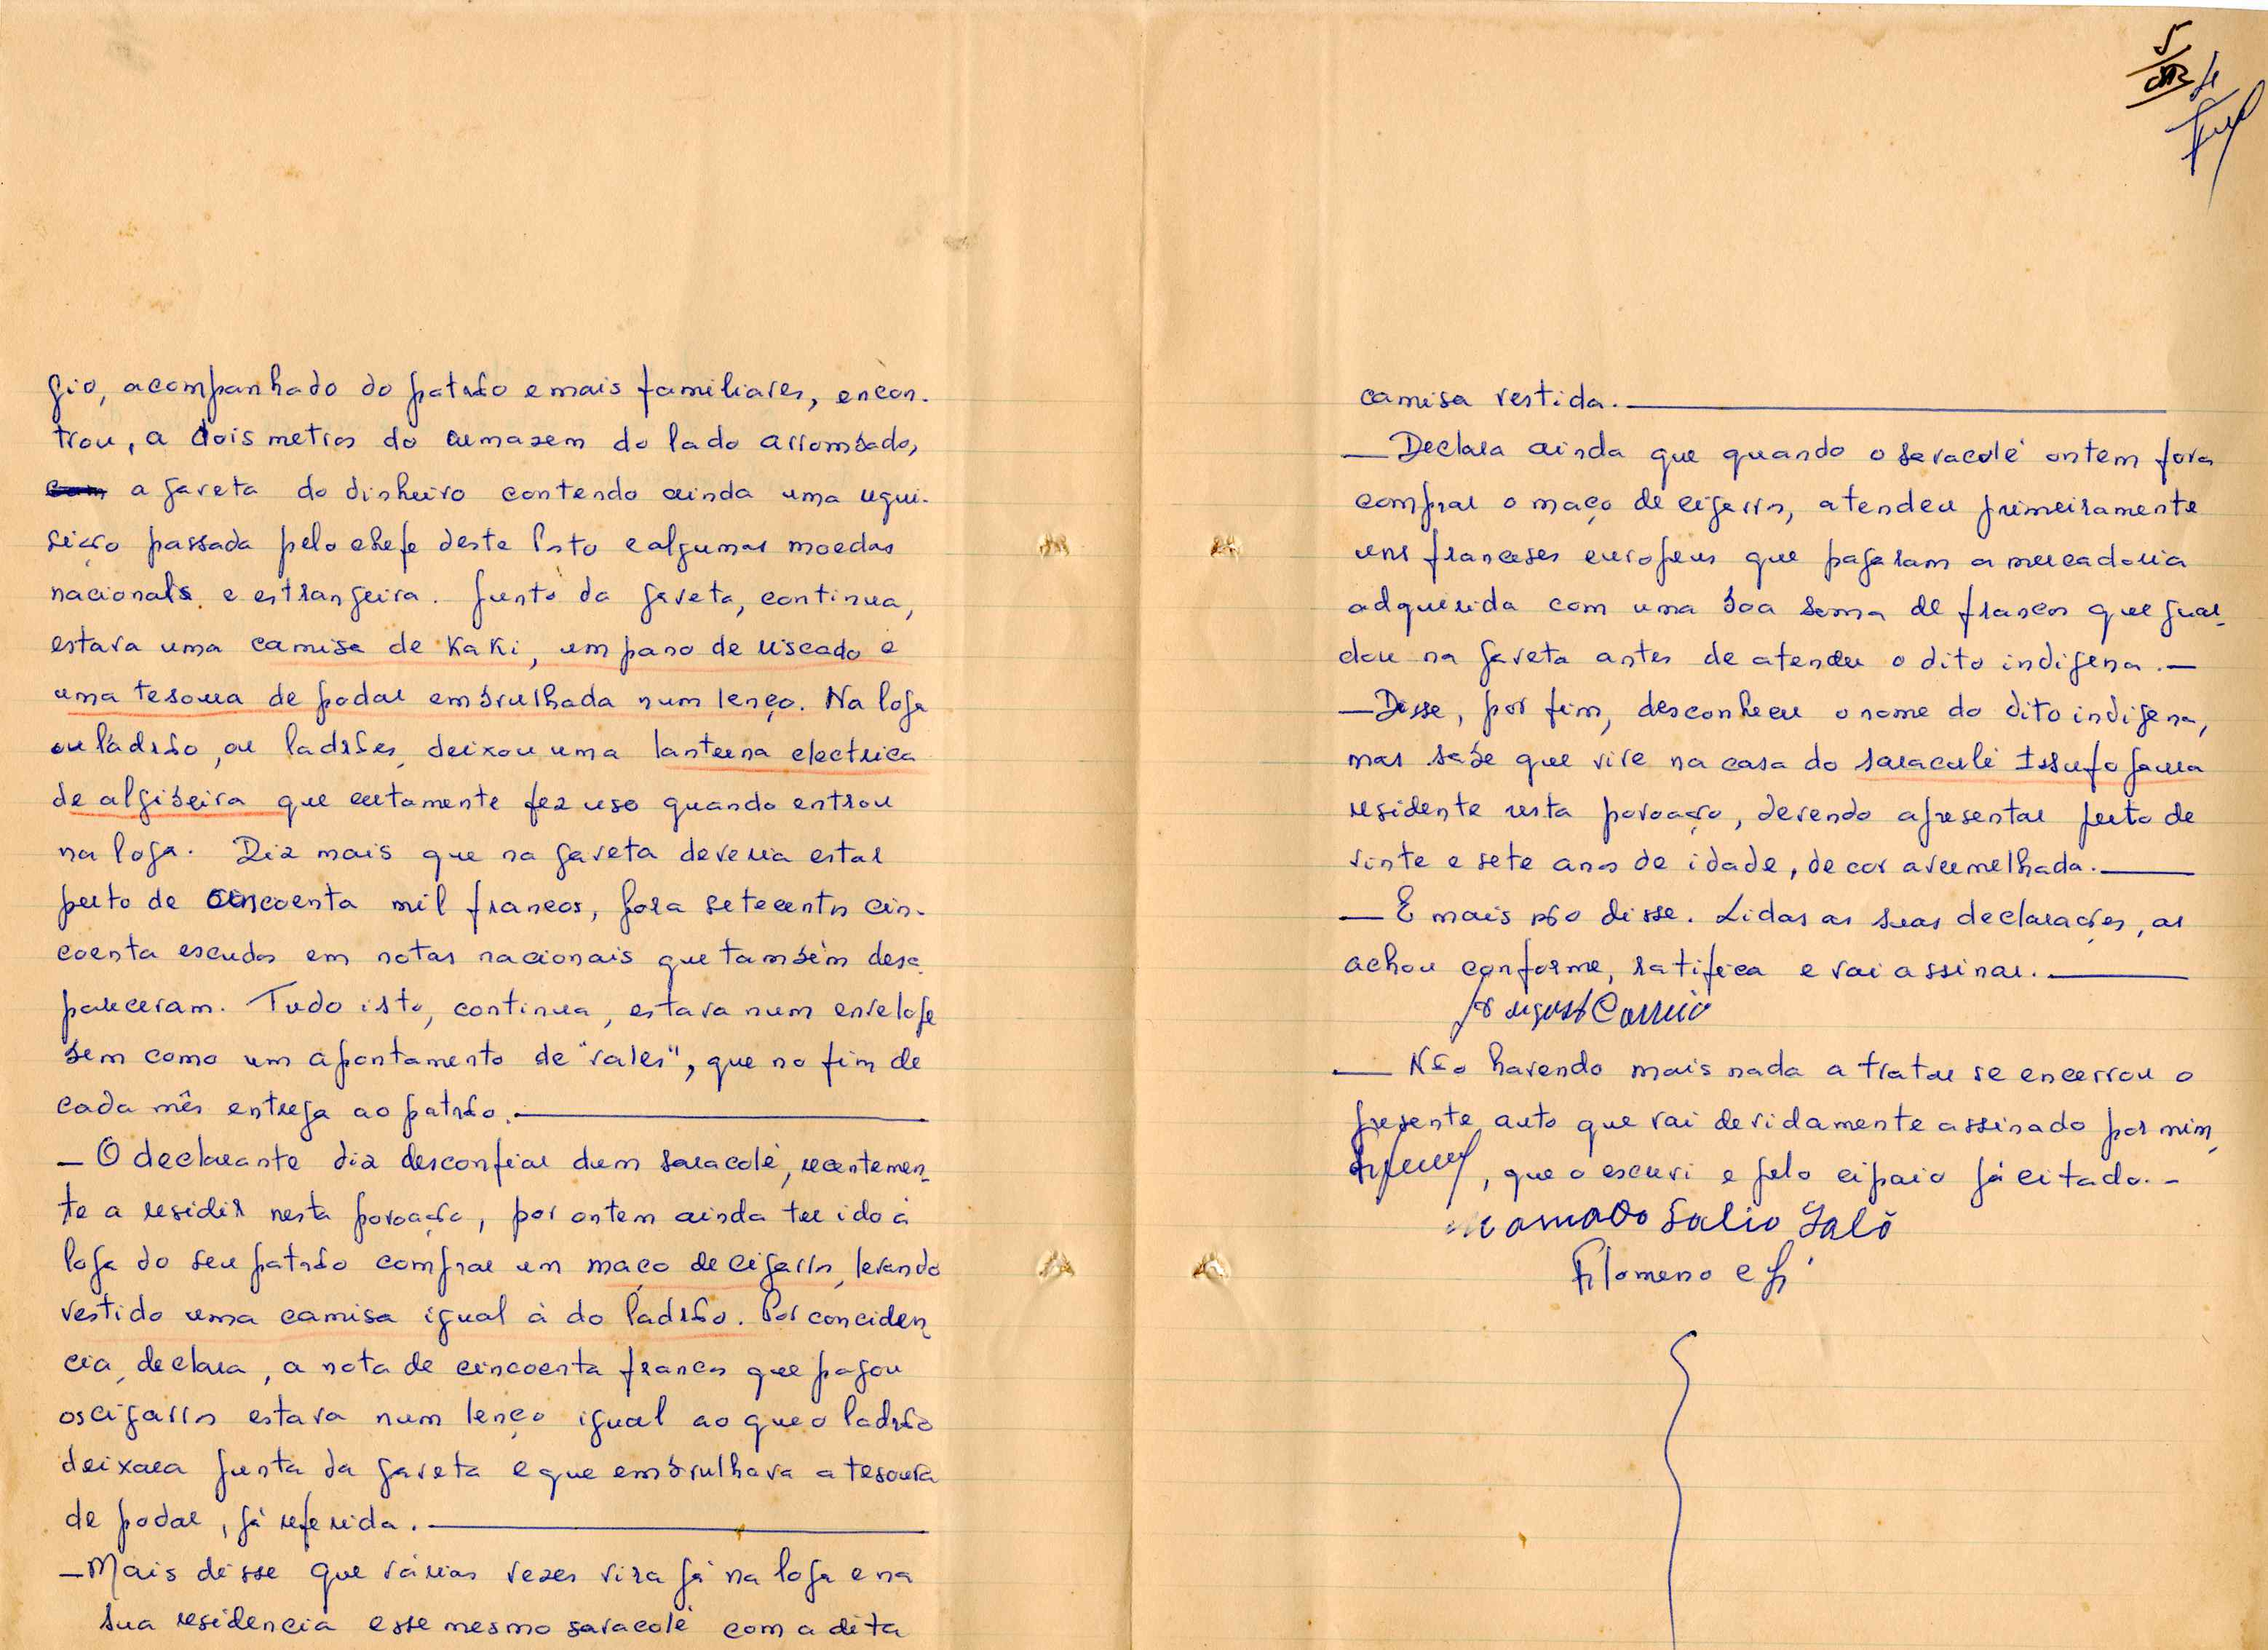 gio, acompanhado do patrão e mais familiares, encon-
trou, a dois metros do armazem do lado arrombado,
a gaveta do dinheiro contendo ainda uma requi-
sição passada pelo chefe deste Posto e algumas moedas
nacionais e estrangeira. Junto da gaveta, continua,
estava uma camisa de Kaki, um pano de riscado e
uma tesoura de podar embrulhada num lenço. Na loja
ou ladrão, ou ladrões, deixou uma lanterna electrica
de algibeira que certamente fez uso quando entrou
na loja. Diz mais que na gaveta deveria estar
perto de cincoenta mil francos, fora setecentos cin-
coenta escudos em notas nacionais que também desa-
pareceram. Tudo isto, continua, estava num envelope
bem como um apontamento de "vales", que no fim de
cada mês entrega ao patrão.
— O declarante diz desconfiar dum saracolé, recentemen-
te a residir nesta povoação, por ontem ainda ter ido á
loja do seu patrão comprar um maço de cigarros, levando
vestido uma camisa igual á do ladrão. Por conciden-
cia, declara, a nota de cincoenta francos que pagou
os cigarros estava num lenço igual ao que o ladrão
deixara junta da gaveta e que embrulhava a tesoura
de podar, já referida.
— Mais disse que várias vezes vira já na loja e na
sua residencia esse mesmo saracolé com a dita
5
camisa vestida.
— Declara ainda que quando o saracolé ontem fora
comprar o maço de cigarros, atendeu primeiramente
uns franceses europeus que pagaram a mercadoria
adquerida com uma boa soma de francos que guar-
dou na gaveta antes de atender o dito indigena. —
— Disse, por fim, desconhecer o nome do dito indigena,
mas sabe que vive na casa do saraculé Issufo Jaura
residente nesta povoação, devendo apresentar perto de
vinte e sete anos de idade, de cor avermelhada.
— E mais não disse. Lidas as suas declarações, as
achou conforme, ratifica e vai assinar.
Augusto Correia
— Não havendo mais nada a tratar se encerrou o
presente auto que vai devidamente assinado por mim,
, que o escrevi e pelo cipaio já citado. -
Mamado Salio Jaló
Filomeno